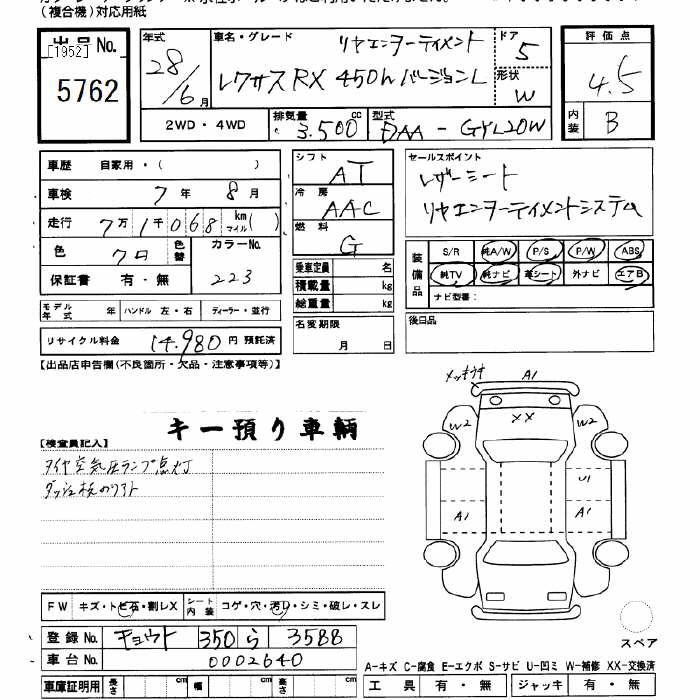 (複合機)対応用紙
出品No.
[1952]
5762
年式
28/6月
車名・グレード
リヤエンターテイメント
レクサスRX 450h バージョンL
ドア
5
形状
W
評価点
4.5
内装
B
2WD・4WD
排気量 3.500 cc
型式 DAA - GYL20W
車歴 自家用・( )
車検 7年 8月
走行 7万1千068 km マイル( )
色 クロ 色替 カラーNo. 223
保証書 有・無
シフト AT
冷房 AAC
燃料 G
乗車定員 名
積載量 kg
総重量 kg
セールスポイント
レザーシート
リヤエンターテイメントシステム
装備品 S/R 純A/W P/S P/W ABS
純TV 純ナビ 革シート 外ナビ エアB
ナビ型番:
モデル年式 年 ハンドル 左・右 ディーラー・並行
リサイクル料金 14.980円 預託済
名変期限 月 日
後日品
【出品店申告欄(不良箇所・欠品・注意事項等)】
キー預り車輌
【検査員記入】
タイヤ空気圧ランプ点灯
メッキウキ
A1
XX
W2
W2
U1
A1
A1
FW キズ・トビ石・割レX シート内装 コゲ・穴・汚レ・シミ・破レ・スレ
登録No. キョウト 350 ら 3588
車台No. 0002640
車庫証明用 長さ cm 幅 cm 高さ cm
スペア
A-キズ C-腐食 E-エクボ S-サビ U-凹ミ W-補修 XX-交換済
工具 有・無 ジャッキ 有・無